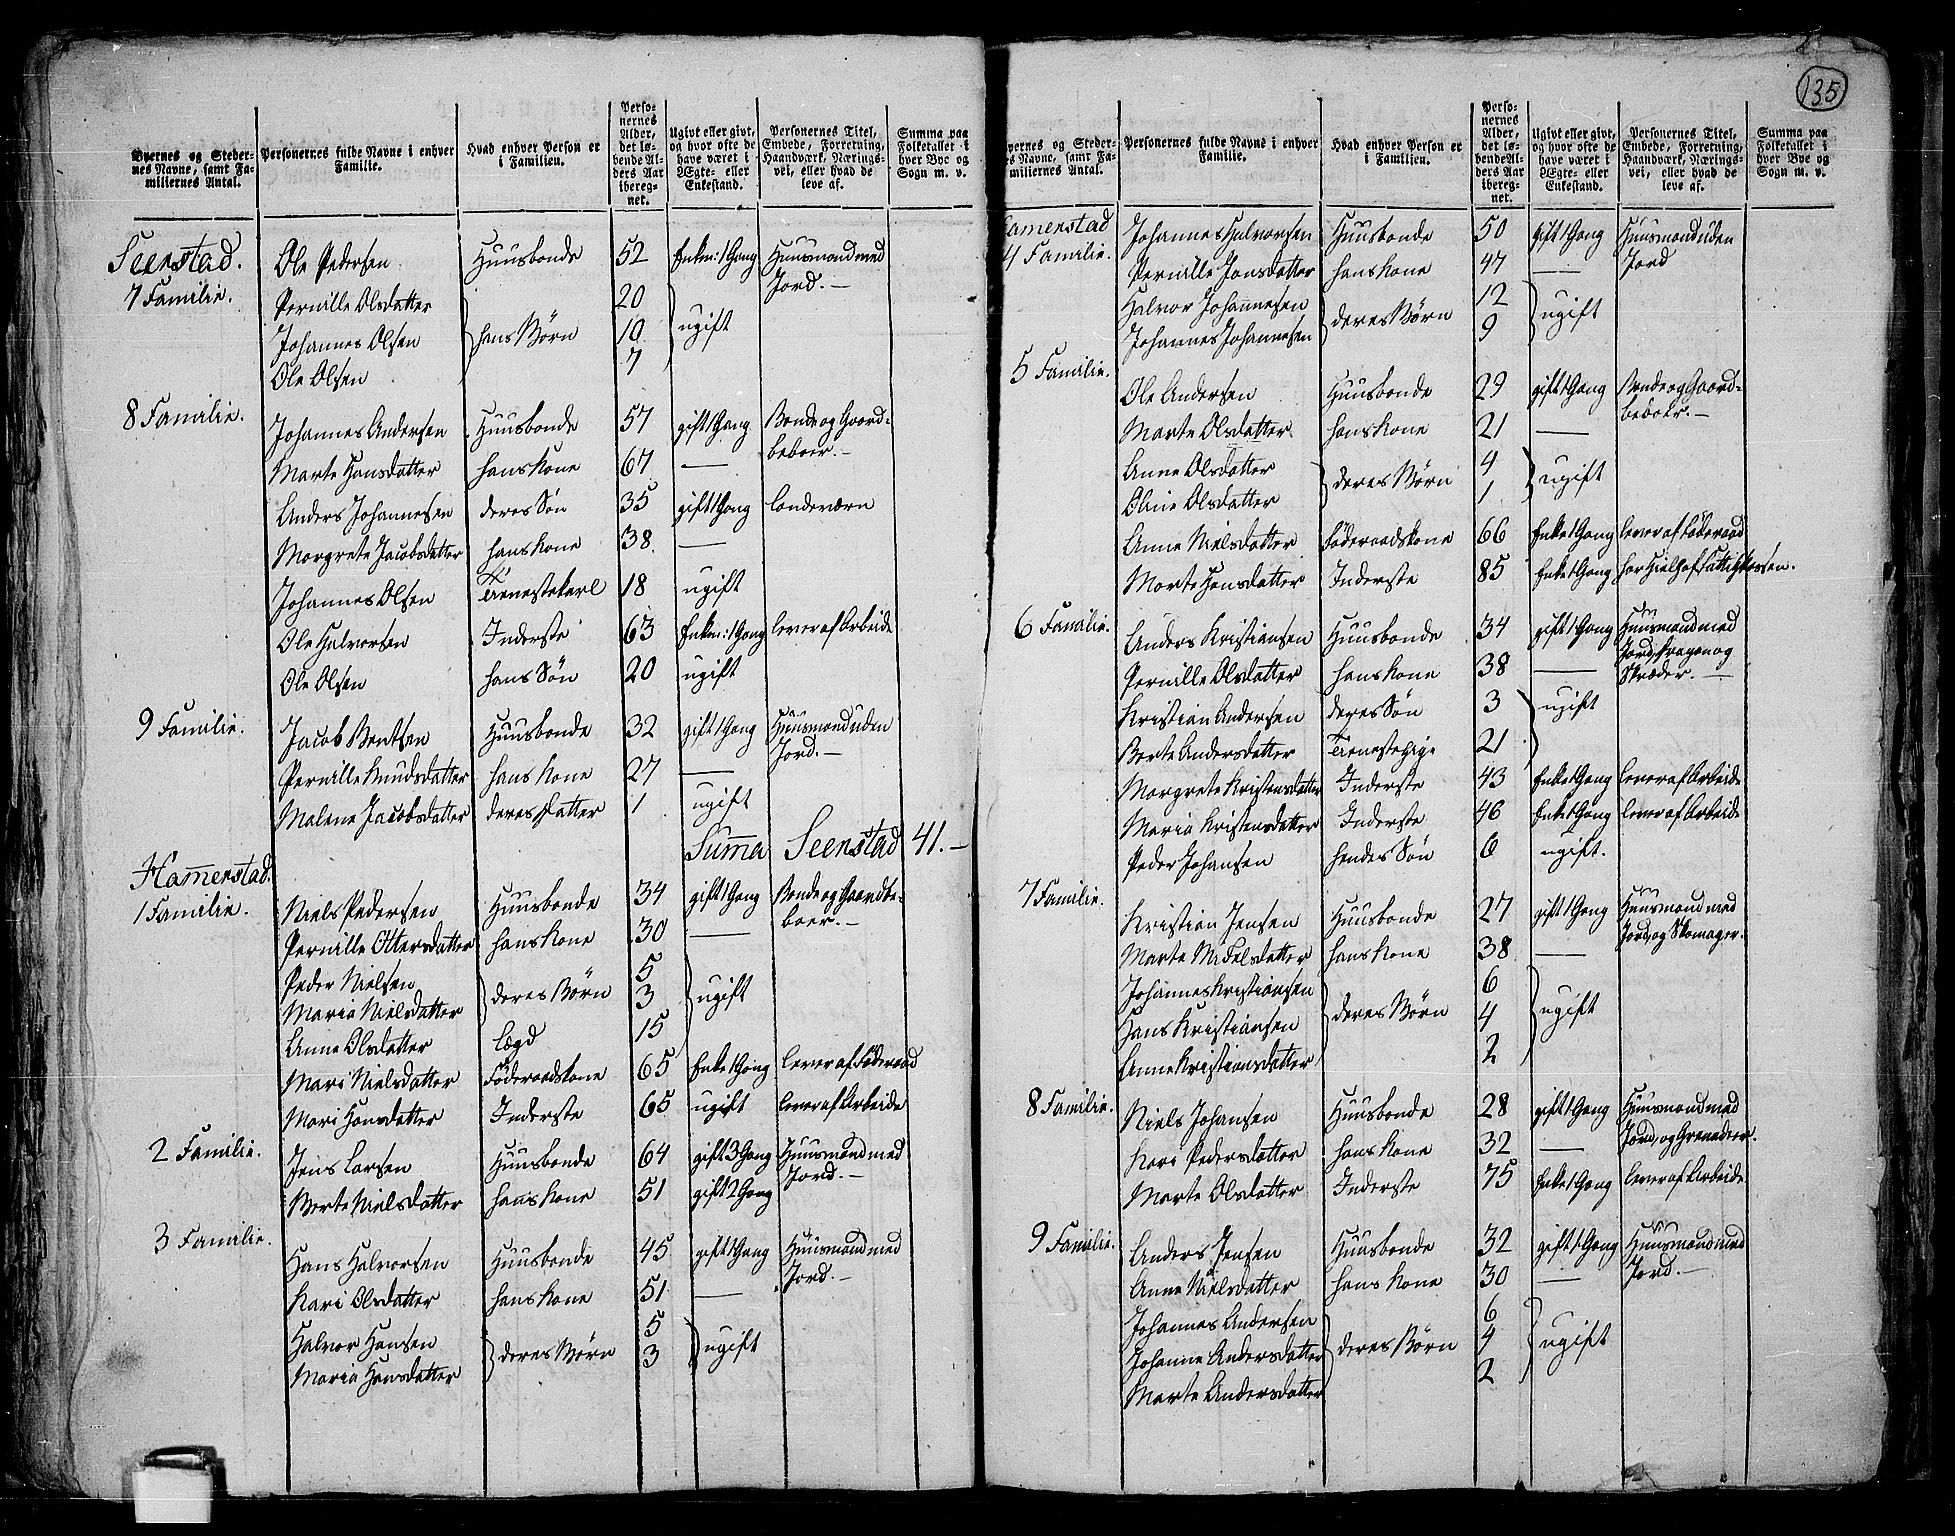 135
Byernes og Stedernes Navne, samt Familiernes Antal.
Personernes fulde Navne i enhver Familie.
Hvad enhver Person er i Familien.
Personernes Alder, det løbende Alders Aar iberegnet.
Ugivt eller givt, og hvor ofte de have været i Ægte- eller Enkestand.
Personernes Titel, Embede, Forretning, Haandværk, Næringsvei, eller hvad de leve af.
Summa paa Folketallet i hver Bye og Sogn m. v.
Seenstad.
7 Familie. Ole Pedersen Huusbonde 52 Enkem: 1 Gang Huusmand med Jord.-
Pernille Olsdatter 20
Johannes Olsen hans Børn 10 ugift
Ole Olsen 7
8 Familie. Johannes Andersen Huusbonde 57 gift 1 Gang Bonde og Gaardbeboer.-
Marte Hansdatter hans Kone 67 —
Anders Johannesen deres Søn 35 gift 1 Gang Landeværn
Margrete Jacobsdatter hans Kone 38 —
Johannes Olsen Tienestekarl 18 ugift
Ole Halvorsen Inderste 63 Enkem: 1 Gang lever af Arbeide
Ole Olsen hans Søn 20 ugift
9 Familie. Jacob Bentsen Huusbonde 32 gift 1 Gang Huusmand uden Jord.-
Pernille Knudsdatter hans Kone 27 —
Malene Jacobsdatter deres Datter 1 ugift
Summa Seenstad 41.-
Hamenstad.
1 Familie. Niels Pedersen Huusbonde 34 gift 1 Gang Bonde og Gaardbeboer.-
Pernille Ottersdatter hans Kone 30 —
Peder Nielsen 5
Maria Nielsdatter deres Børn 3 ugift
Anne Olsdatter Lægd 15
Mari Nielsdatter Föderaadskone 65 Enke 1 Gang lever af Föderaad
Mari Hansdatter Inderste 65 ugift lever af Arbeide
2 Familie. Jens Larsen Huusbonde 64 gift 3 Gang Huusmand med Jord.-
Berte Nielsdatter hans Kone 51 gift 2 Gang
3 Familie. Hans Halvorsen Huusbonde 45 gift 1 Gang Huusmand med Jord.-
Kari Olsdatter hans Kone 51 —
Halvor Hansen 5
Maria Hansdatter deres Børn 3 ugift
Byernes og Stedernes Navne, samt Familiernes Antal.
Personernes fulde Navne i enhver Familie.
Hvad enhver Person er i Familien.
Personernes Alder, det løbende Alders Aar iberegnet.
Ugivt eller givt, og hvor ofte de have været i Ægte- eller Enkestand.
Personernes Titel, Embede, Forretning, Haandværk, Næringsvei, eller hvad de leve af.
Summa paa Folketallet i hver Bye og Sogn m. v.
Hamenstad
4 Familie. Johannes Halvorsen Huusbonde 50 gift 1 Gang Huusmand uden Jord
Pernille Jonsdatter hans Kone 47 —
Halvor Johannesen 12
Johannes Johannesen deres Børn 9 ugift
5 Familie. Ole Andersen Huusbonde 29 gift 1 Gang Bonde og Gaardbeboer.-
Marte Olsdatter hans Kone 21 —
Anne Olsdatter 4
Oline Olsdatter deres Børn 1 ugift
Anne Nielsdatter Föderaadskone 66 Enke 1 Gang lever af Föderaad
Marte Hansdatter Inderste 85 Enke 1 Gang har Hielp af Fattigkassen.
6 Familie. Anders Kristiansen Huusbonde 34 gift 1 Gang Huusmand med Jord, Dragon og Skræder.
Pernille Olsdatter hans Kone 38 —
Kristian Andersen deres Søn 3 ugift
Berte Andersdatter Tienestepige 21
Margrete Kristensdatter Inderste 43 Enke 1 Gang lever af Arbeide
Maria Kristensdatter Inderste 46 Enke 1 Gang lever af Arbeide
Peder Johansen hendes Søn 6 ugift.
7 Familie. Kristian Jensen Huusbonde 27 gift 1 Gang Huusmand med Jord, og Skomager.
Marte Mikelsdatter hans Kone 38 —
Johannes Kristiansen 6
Hans Kristiansen deres Børn 4 ugift
Anne Kristiansdatter 2
8 Familie. Niels Johansen Huusbonde 28 gift 1 Gang Huusmand med Jord, og Grenadeer.
Kari Pedersdatter hans Kone 32 —
Marte Olsdatter Inderste 75 Enke 1 Gang lever af Arbeide
9 Familie. Anders Jensen Huusbonde 32 gift 1 Gang Huusmand med Jord.-
Anne Nielsdatter hans Kone 30 —
Johannes Andersen 6
Johanne Andersdatter deres Børn 4 ugift
Marte Andersdatter 2